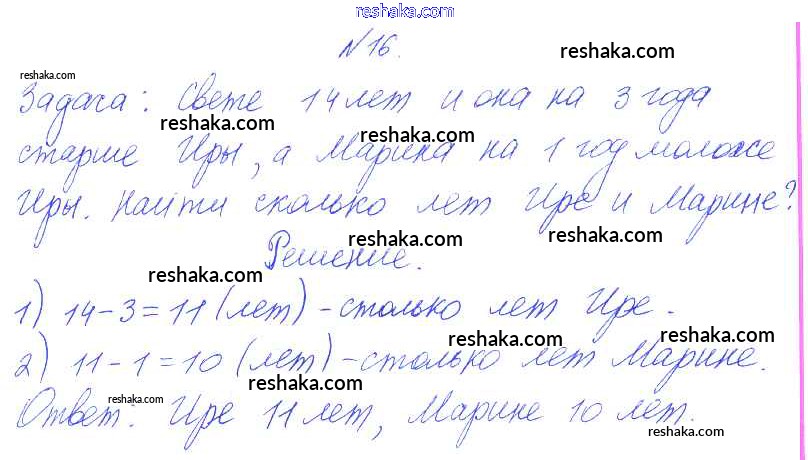 reshaka.com
№16.
reshaka.com
reshaka.com
Задача: Свете 14 лет и она на 3 года
reshaka.com
reshaka.com
старше Иры, а Марина на 1 год моложе
reshaka.com
Иры. Найти сколько лет Ире и Марине?
reshaka.com
reshaka.com
Решение.
reshaka.com
1) 14-3=11 (лет) - столько лет Ире.
reshaka.com
reshaka.com
2) 11-1=10 (лет) - столько лет Марине.
reshaka.com
reshaka.com
Ответ: Ире 11 лет, Марине 10 лет.
reshaka.com